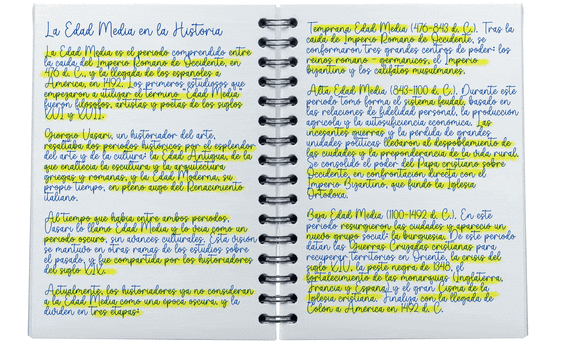 La Edad Media en la Historia
La Edad Media es el periodo comprendido entre
la caída del Imperio Romano de Occidente, en
476 d. C., y la llegada de los españoles a
América, en 1492. Los primeros estudiosos que
empezaron a utilizar el término "Edad Media"
fueron filósofos, artistas y poetas de los siglos
XVI y XVII.
Giorgio Vasari, un historiador del arte,
resaltaba dos periodos históricos por el esplendor
del arte y de la cultura: la Edad Antigua, de la
que enaltecía la escultura y la arquitectura
griegas y romanas, y la Edad Moderna, su
propio tiempo, en pleno auge del Renacimiento
italiano.
Al tiempo que había entre ambos periodos,
Vasari lo llamó Edad Media y lo veía como un
periodo oscuro, sin avances culturales. Esta visión
se mantuvo en otras ramas de los estudios sobre
el pasado, y fue compartida por los historiadores
del siglo XIX.
Actualmente, los historiadores ya no consideran
a la Edad Media como una época oscura, y la
dividen en tres etapas:
Temprana Edad Media (476-843 d. C.). Tras la
caída de Imperio Romano de Occidente, se
conformaron tres grandes centros de poder: los
reinos romano - germánicos, el Imperio
bizantino y los califatos musulmanes.
Alta Edad Media (843-1100 d. C.). Durante este
periodo tomó forma el sistema feudal, basado en
las relaciones de fidelidad personal, la producción
agrícola y la autosuficiencia económica. Las
incesantes guerras y la pérdida de grandes
unidades políticas llevaron al despoblamiento de
las ciudades y la preponderancia de la vida rural.
Se consolidó el poder del Papa cristiano sobre
Occidente, en confrontación directa con el
Imperio Bizantino, que fundó la Iglesia
Ortodoxa.
Baja Edad Media (1100-1492 d. C.). En este
periodo resurgieron las ciudades y apareció un
nuevo grupo social: la burguesía. De este periodo
datan las Guerras Cruzadas cristianas para
recuperar territorios en Oriente, la crisis del
siglo XIV, la peste negra de 1348, el
fortalecimiento de las monarquías (Inglaterra,
Francia y España) y el gran Cisma de la
Iglesia cristiana. Finaliza con la llegada de
Colón a América en 1492 d. C.